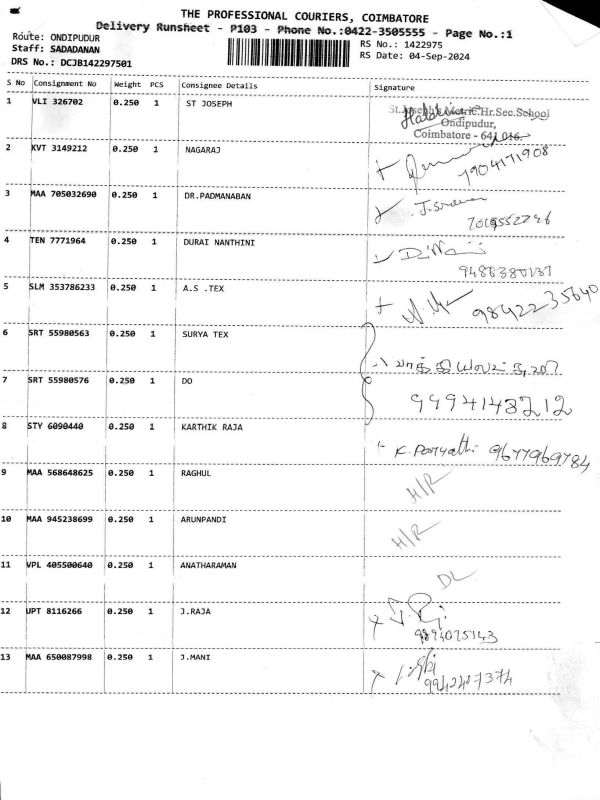 THE PROFESSIONAL COURIERS, COIMBATORE
Delivery Runsheet - P103 - Phone No.:0422-3505555 - Page No.:1
Route: ONDIPUDUR
RS No.: 1422975
Staff: SADADANAN
RS Date: 04-Sep-2024
DRS No.: DCJB142297501
S No Consignment No Weight PCS Consignee Details Signature
1 VLI 326702 0.250 1 ST JOSEPH
St.Joseph's Matric.Hr.Sec.School
Ondipudur,
Coimbatore - 641 016.
2 KVT 3149212 0.250 1 NAGARAJ
7904171908
3 MAA 705032690 0.250 1 DR.PADMANABAN
4 TEN 7771964 0.250 1 DURAI NANTHINI
5 SLM 353786233 0.250 1 A.S .TEX
98422 35640
6 SRT 55980563 0.250 1 SURYA TEX
7 SRT 55980576 0.250 1 DO
9994148212
8 STY 6090440 0.250 1 KARTHIK RAJA
9677969784
9 MAA 568648625 0.250 1 RAGHUL H/R
10 MAA 945238699 0.250 1 ARUNPANDI H/R
11 VPL 405500640 0.250 1 ANATHARAMAN DL
12 UPT 8116266 0.250 1 J.RAJA
9894075143
13 MAA 650087998 0.250 1 J.MANI